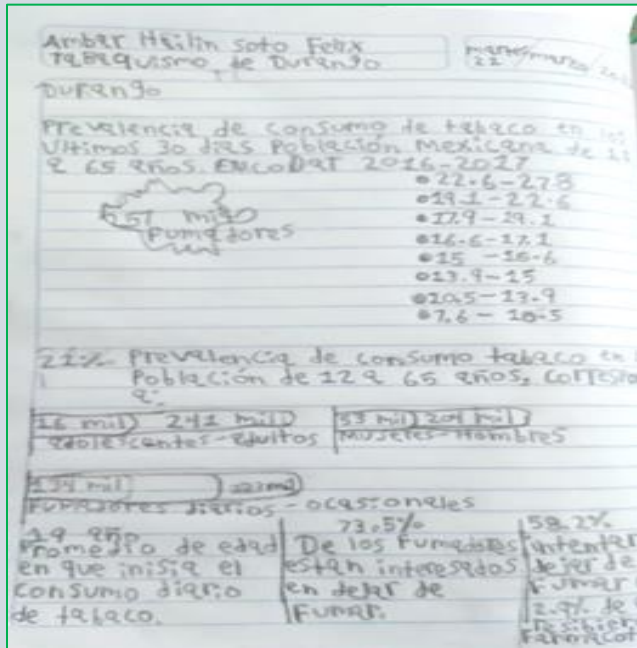 Ambar Heilin Soto Felix
Tabaquismo de Durango
martes/marzo/
22
Durango
Prevalencia de consumo de tabaco en los
Ultimos 30 dias Población Mexicana de 12
a 65 años. ENCODAT 2016-2017
257 mil
Fumadores
•22.6-27.8
•19.1-22.6
•17.9-19.1
•16.6-17.1
•15 -16.6
•13.9-15
•10.5-13.9
•7.6-10.5
21% Prevalencia de consumo tabaco en
Población de 12 a 65 años,
a:
16 mil 241 mil
adolescentes-adultos
53 mil 204 mil
Mujeres-Hombres
134 mil 123 mil
Fumadores diarios-ocasionales
19 año
Promedio de edad
en que inisia el
consumo diario
de tabaco.
73.5%
De los Fumadores
estan interesados
en dejar de
Fumar.
58.2%
intentar
dejar de
Fumar
2.9% de